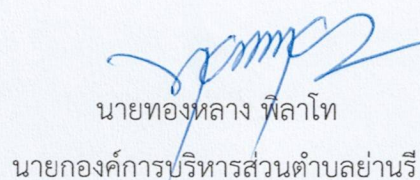 นายทองหลาง พิลาโท
นายกองค์การบริหารส่วนตำบลย่านรี